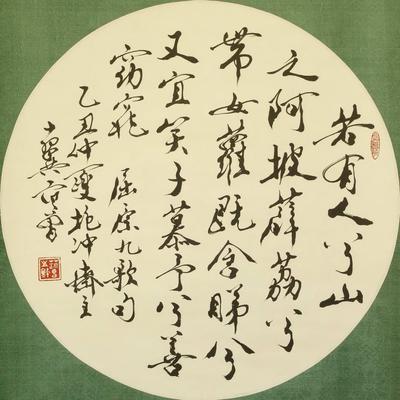 若有人兮山
之阿披薜荔兮
帶女蘿既含睇兮
又宜笑子慕予兮善
窈窕 屈原九歌句
乙丑仲夏抱冲齋主
十翼范曾